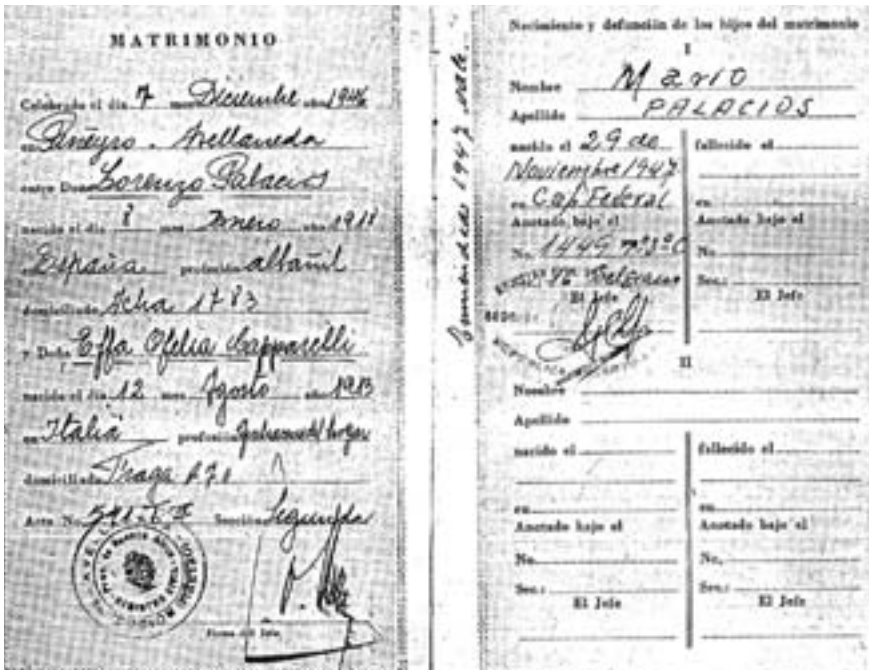 MATRIMONIO
Celebrado el día 7 mes Diciembre año 1946
en Piñeyro. Avellaneda
entre Don Lorenzo Palacios
nacido el día 8 mes Enero año 1911
España profesión albañil
domiciliado Acha 1783
y Doña Effa Ofelia Capparelli
nacida el día 12 mes Agosto año 1913
en Italia profesión
domiciliada Praga
Acta No. Sección Segunda
Firma del Jefe
Enmendado 1947 vale.
Nacimiento y defunción de los hijos del matrimonio
I
Nombre Mario
Apellido PALACIOS
nacido el 29 de
Noviembre 1947
en Cap Federal
Anotado bajo el
No. 1449
Belgrano
El Jefe
fallecido el
en
Anotado bajo el
No.
Sec.:
El Jefe
II
Nombre
Apellido
nacido el
en
Anotado bajo el
No.
Sec.:
El Jefe
fallecido el
en
Anotado bajo el
No.
Sec.:
El Jefe